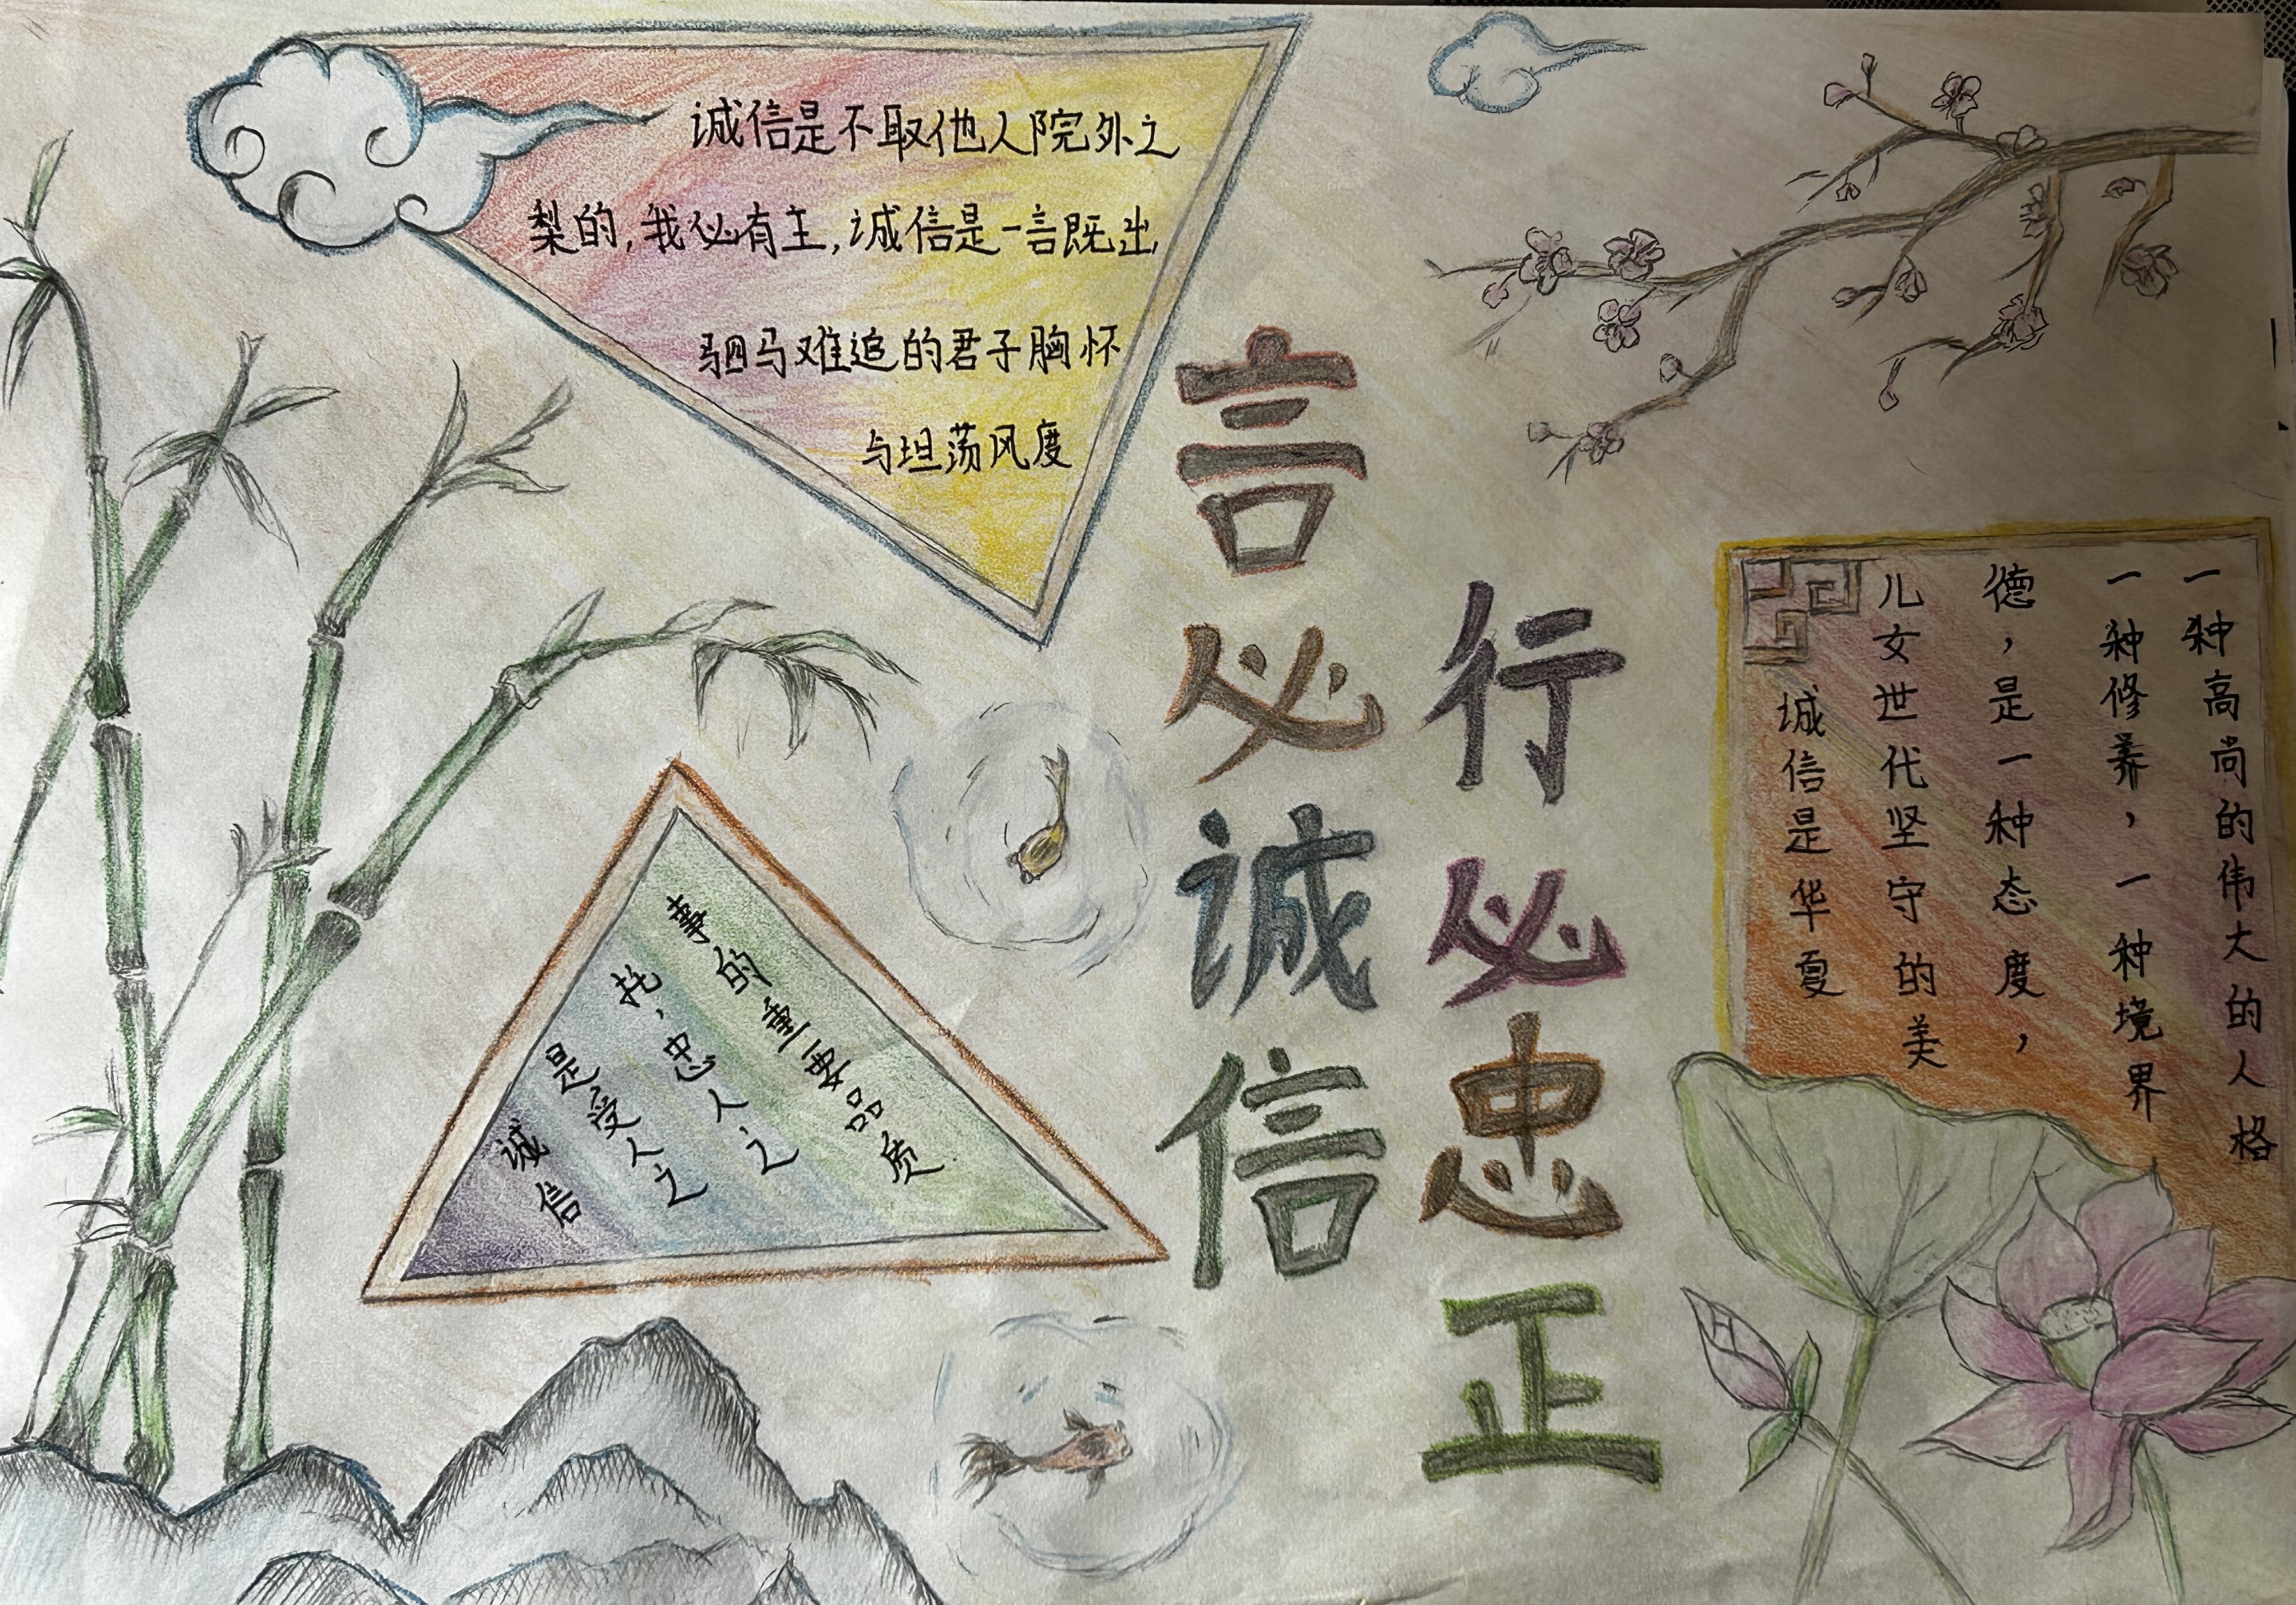 诚信是不取他人院外之
梨的,我必有主,诚信是一言既出
驷马难追的君子胸怀
与坦荡风度
言必诚信
行必忠正
诚信
是受人之
托,忠人之
事的重要品质
诚信是华夏
儿女世代坚守的美
德,是一种态度,
一种修养,一种境界
一种高尚的伟大的人格